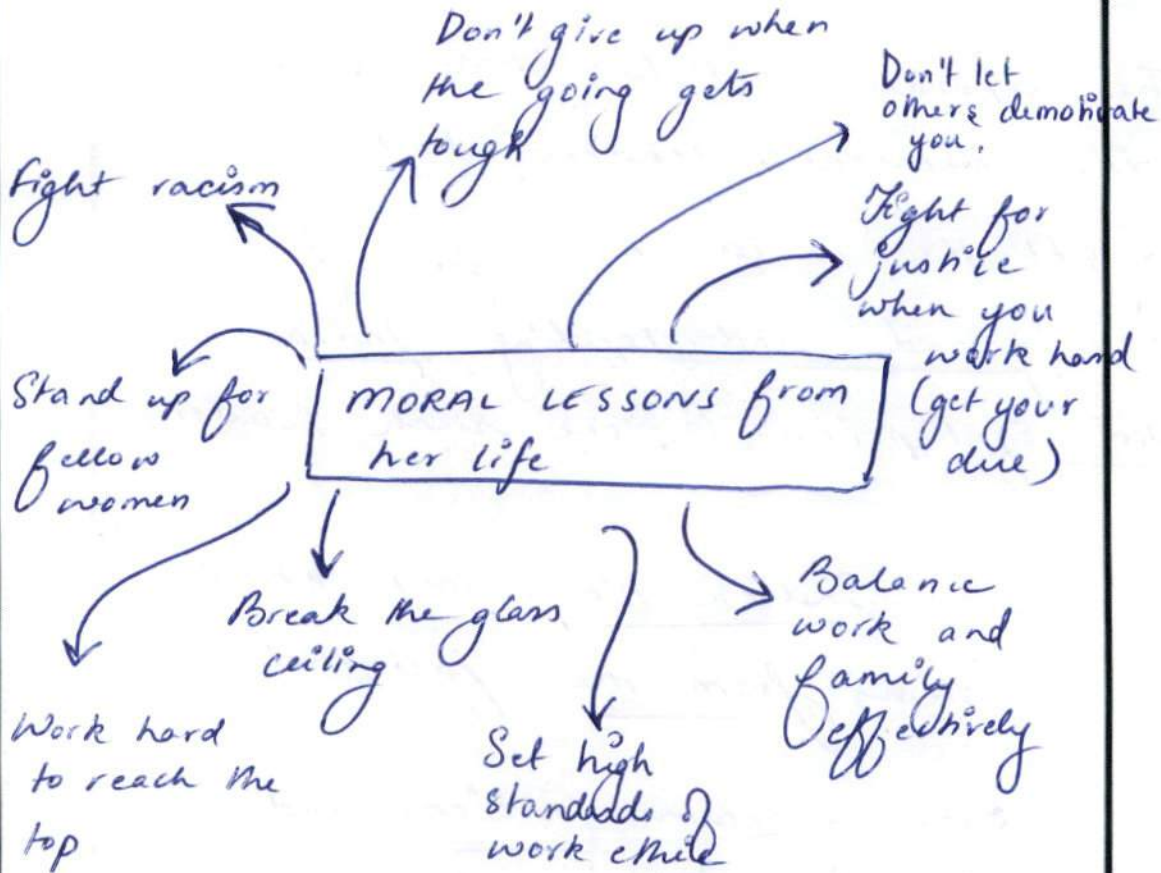 Don't give up when
the going gets
tough
Don't let
others demotivate
you.
Fight racism
Fight for
justice
when you
work hard
(get your
due)
Stand up for
fellow
women
MORAL LESSONS from
her life
Break the glass
ceiling
Balance
work and
family
effectively
Work hard
to reach the
top
Set high
standards of
work ethic